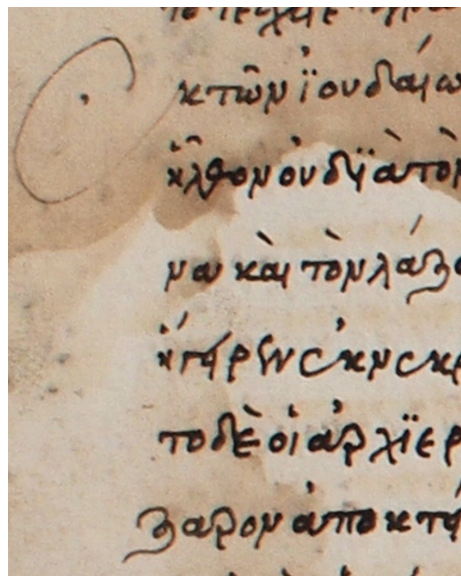 κ τῶν ϊουδαίω
ἦλθον οὐ δϊὰ τὸν
να καὶ τὸν λάζα
ἤγειρεν ἐκ νεκρ
το δὲ οἱ ἀρχϊερ
ζαρον ἀποκτεί